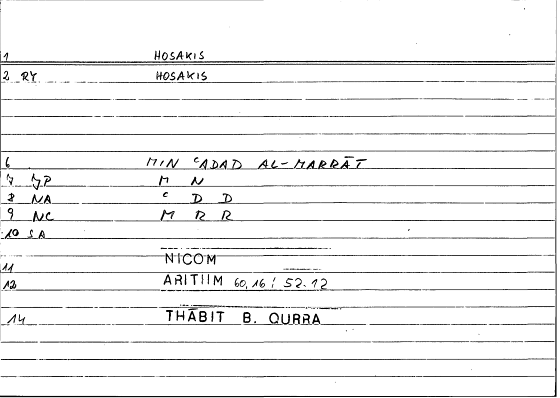 1 HOSAKIS
2 RY HOSAKIS
6 MIN ʿADAD AL-MARRĀT
7 JP M N
8 NA ʿ D D
9 NC M R R
10 SA
11 NICOM
12 ARITIIM 60,16 / 52.12
14 THĀBIT B. QURRA